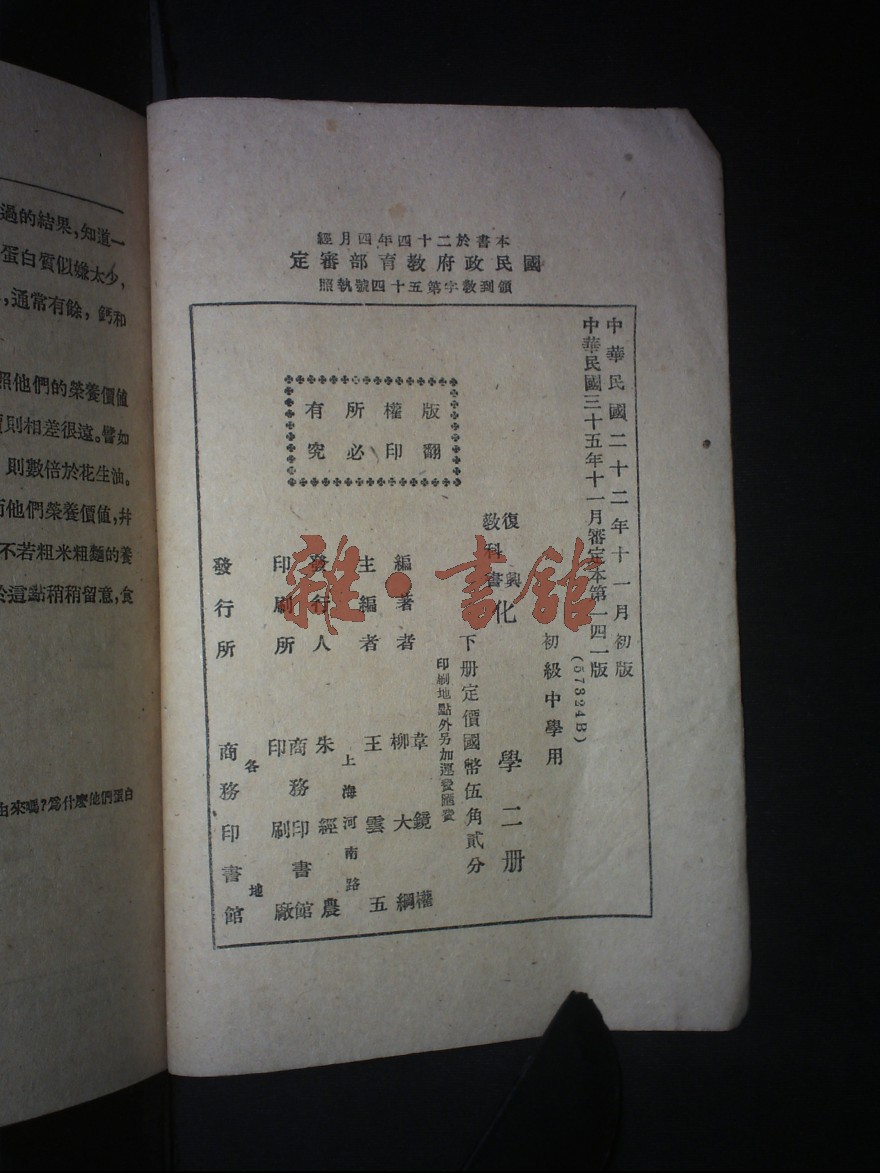 過的結果，知道一
蛋白質似嫌太少，
，通常有餘，鈣和
照他們的榮養價值
則相差很遠。譬如
則數倍於花生油。
而他們榮養價值，幷
不若粗米粗麵的養
於這點稍稍留意，食
由來嗎？爲什麼他們蛋白
本書於二十四年四月經
國民政府教育部審定
領到教字第五十四號執照
中華民國二十二年十一月初版
中華民國三十五年十一月審定本第一四一版
(57324B)
版權所有
翻印必究
初級中學用
復興教科書 化學 二册
下册定價國幣伍角貳分
印刷地點外另加運費匯費
編著者 韋鏡權 柳大綱
主編者 王雲五
上海河南路
發行人 朱經農
印刷所 商務印書館印刷廠
各地
發行所 商務印書館
雜·書館